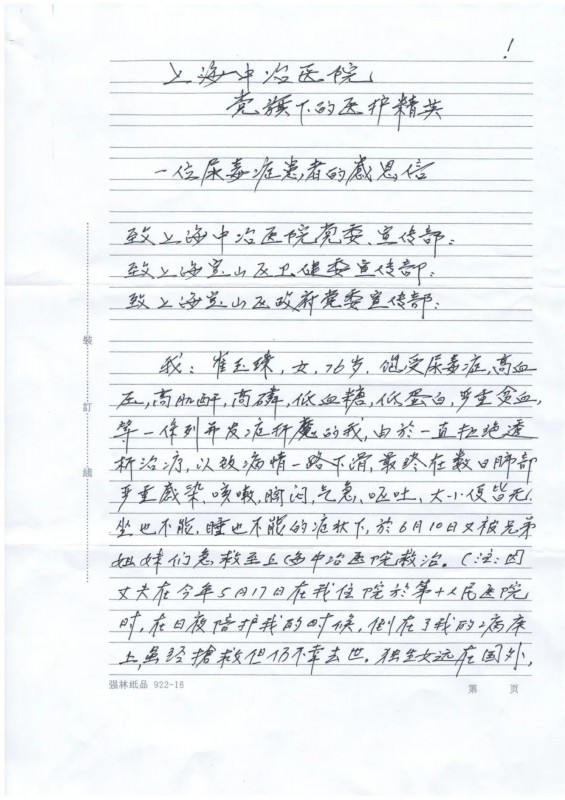 !
上海中冶医院
党旗下的医护精英
一位尿毒症患者的感恩信
致上海中冶医院党委、宣传部:
致上海宝山区卫健委宣传部:
致上海宝山区政府党委宣传部:
我:崔玉臻,女,76岁,饱受尿毒症,高血
压,高肌酐,高磷,低血糖,低蛋白,严重贫血,
等一系列并发症折魔的我,由於一直拒绝透
析治疗,以致病情一路下滑,最终在数日肺部
严重感染、咳嗽,胸闷,气急、呕吐、大小便皆无、
坐也不能,睡也不能的症状下,於6月10日又被兄弟
姐妹们急救至上海中冶医院救治。(注:因
丈夫在今年5月17日在我住院於第十人民医院
时,在日夜陪护我的时候,倒在了我的病床
上,虽经搶救但仍不幸去世。独生女远在国外,
裝
訂
线
强林纸品 922-16
第 页